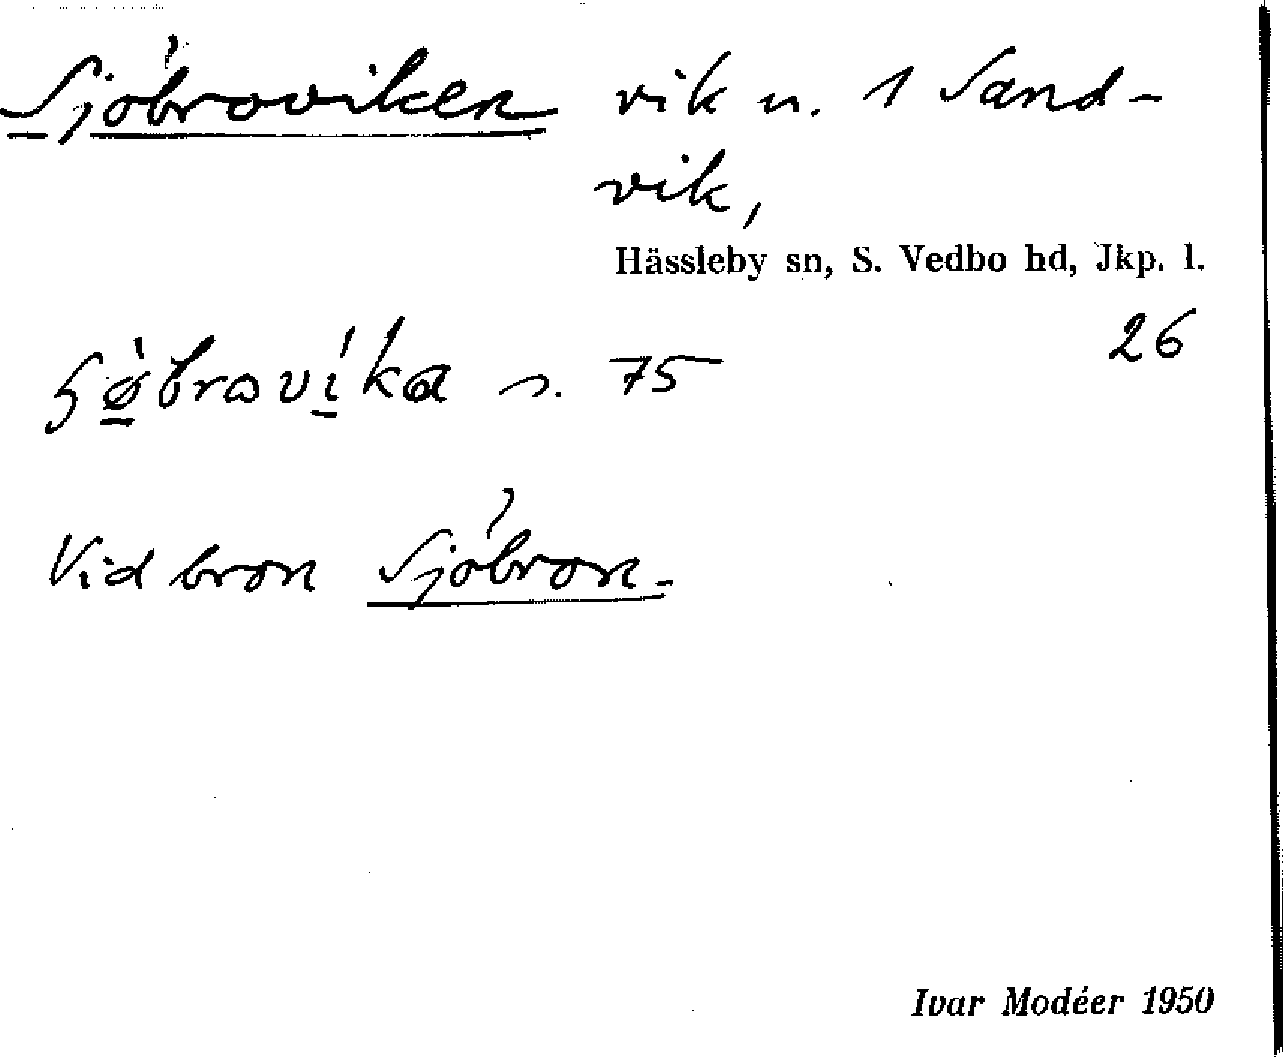 Sjöbroviken vik n. 1 Sand-
vik,
Hässleby sn, S. Vedbo hd, Jkp. l.
26
s. 75
Vid bron Sjöbron.
Ivar Modéer 1950